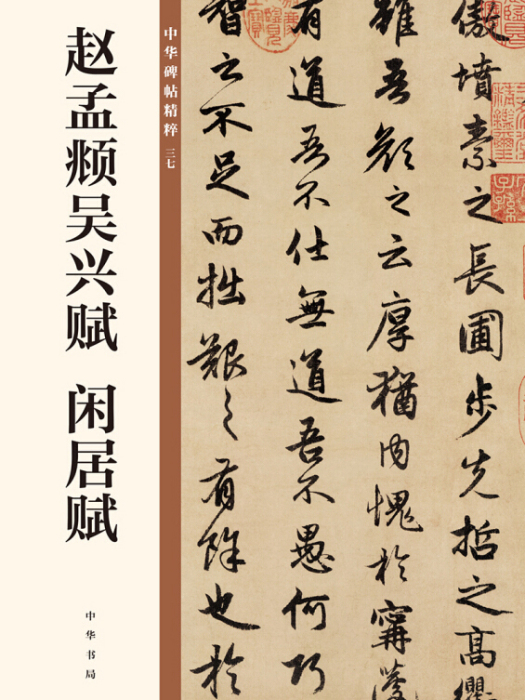 赵孟𫖯吴兴赋 闲居赋
中华书局
中华碑帖精粹 三七
傲墳素之長圃步先哲之高衢
雖吾顏之云厚猶内愧於甯蘧
有道吾不仕無道吾不愚何巧
智之不足而拙艱之有餘也於